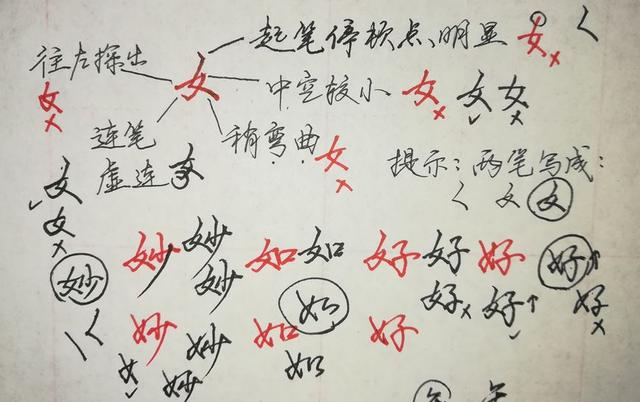 起笔停顿点、明显 女 く
往左探出 女 中空较小 女 女 女
女
连笔 稍弯曲 女
虚连 女 提示：两笔写成：
女 く 女 女
女
妙 妙 如 如 好 好 好 好
妙 妙 如 好 好 好
妙 妙 如 好
女 妙 如